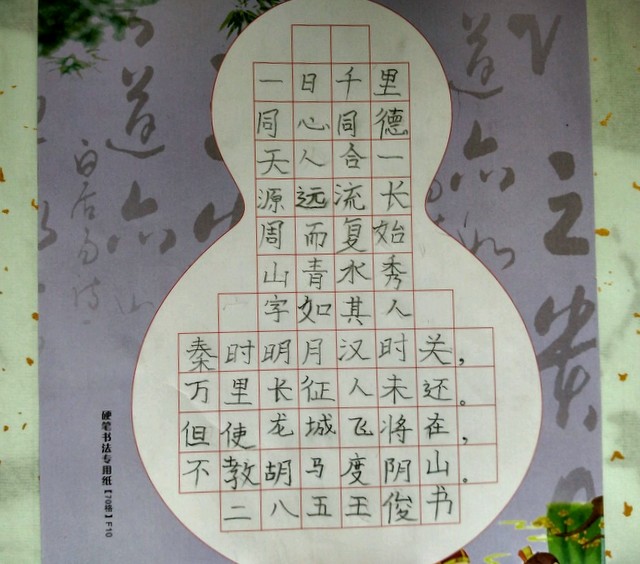 一日千里
同心同德
天人合一
源远流长
周而复始
山青水秀
字如其人
秦时明月汉时关，
万里长征人未还。
但使龙城飞将在，
不教胡马度阴山。
二八五王俊书
硬笔书法专用纸【70格】F10
白居易诗
道六